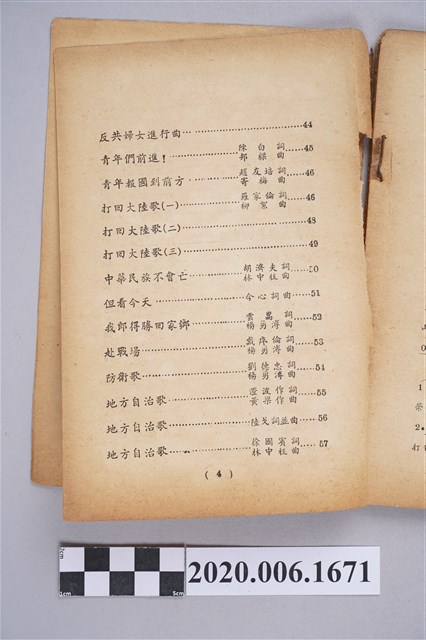 反共婦女進行曲……………………44
青年們前進！……………………陳白詞 邦祿曲……45
青年報國到前方……………………趙友培詞 寄梅曲……46
打回大陸歌(一)……………………羅家倫詞 柳絮曲……46
打回大陸歌(二)……………………48
打回大陸歌(三)……………………49
中華民族不會亡……………………胡濟夫詞 林中柱曲……50
但看今天……………………今心詞曲……51
我郎得勝回家鄉……………………雲崑詞 楊勇溥曲……52
赴戰場……………………戴序倫詞 楊勇溥曲……53
防衛歌……………………劉德忠詞 楊勇溥曲……54
地方自治歌……………………澄波作詞 黃梁作曲……55
地方自治歌……………………陸戈詞並曲……56
地方自治歌……………………徐國賓詞 林中柱曲……57
( 4 )
1
榮
2.
打
2cm
1cm
5cm
2020.006.1671